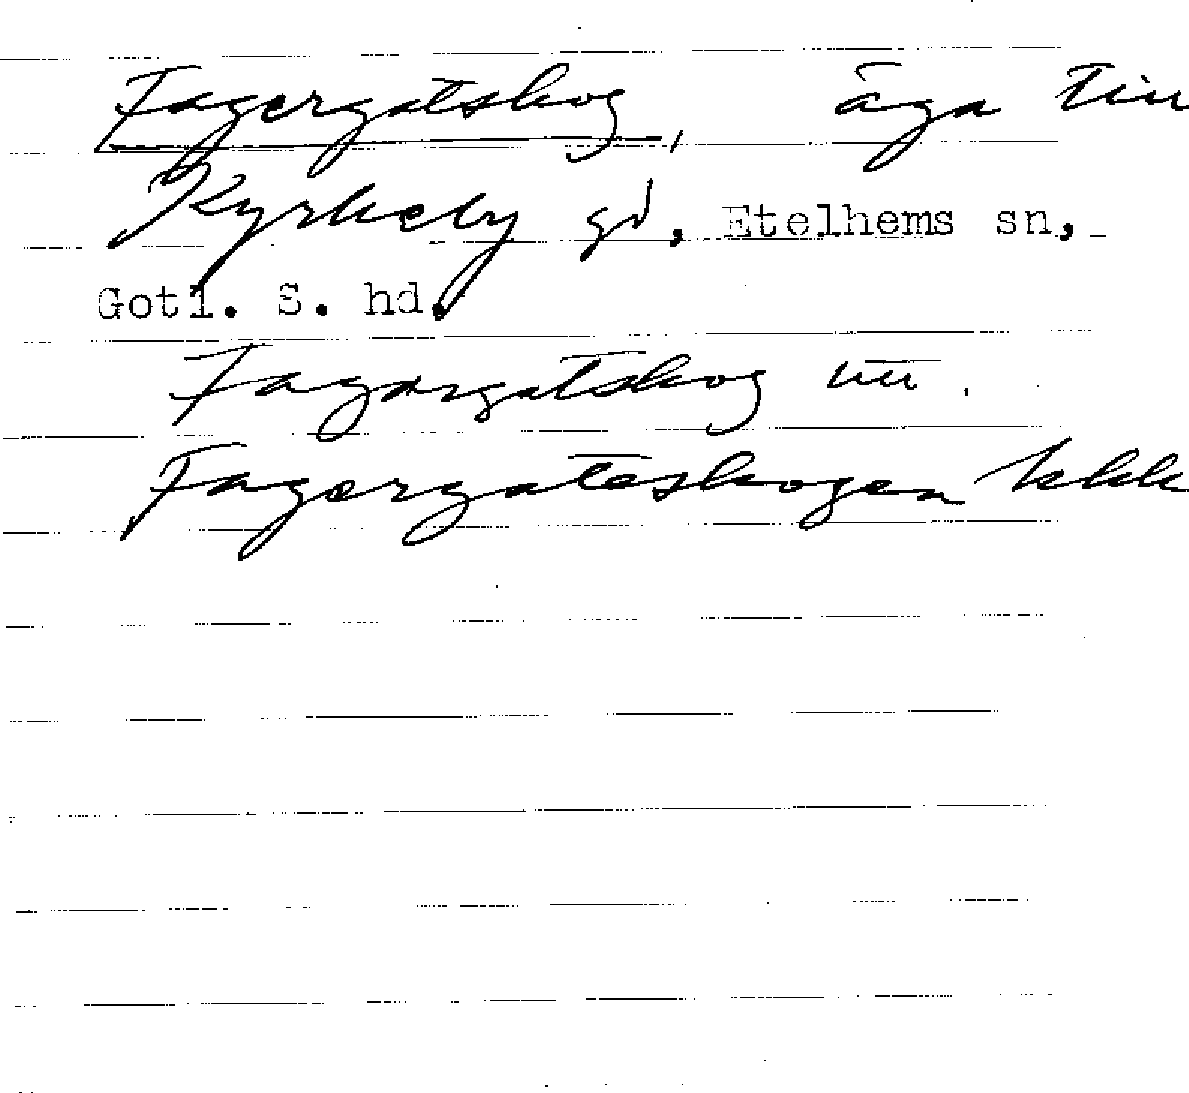 Fagergatskog, äga till
Kyrkeby gd, Etelhems sn,
Gotl. S. hd.
Fagergatskog
Fagergateskogen kkk